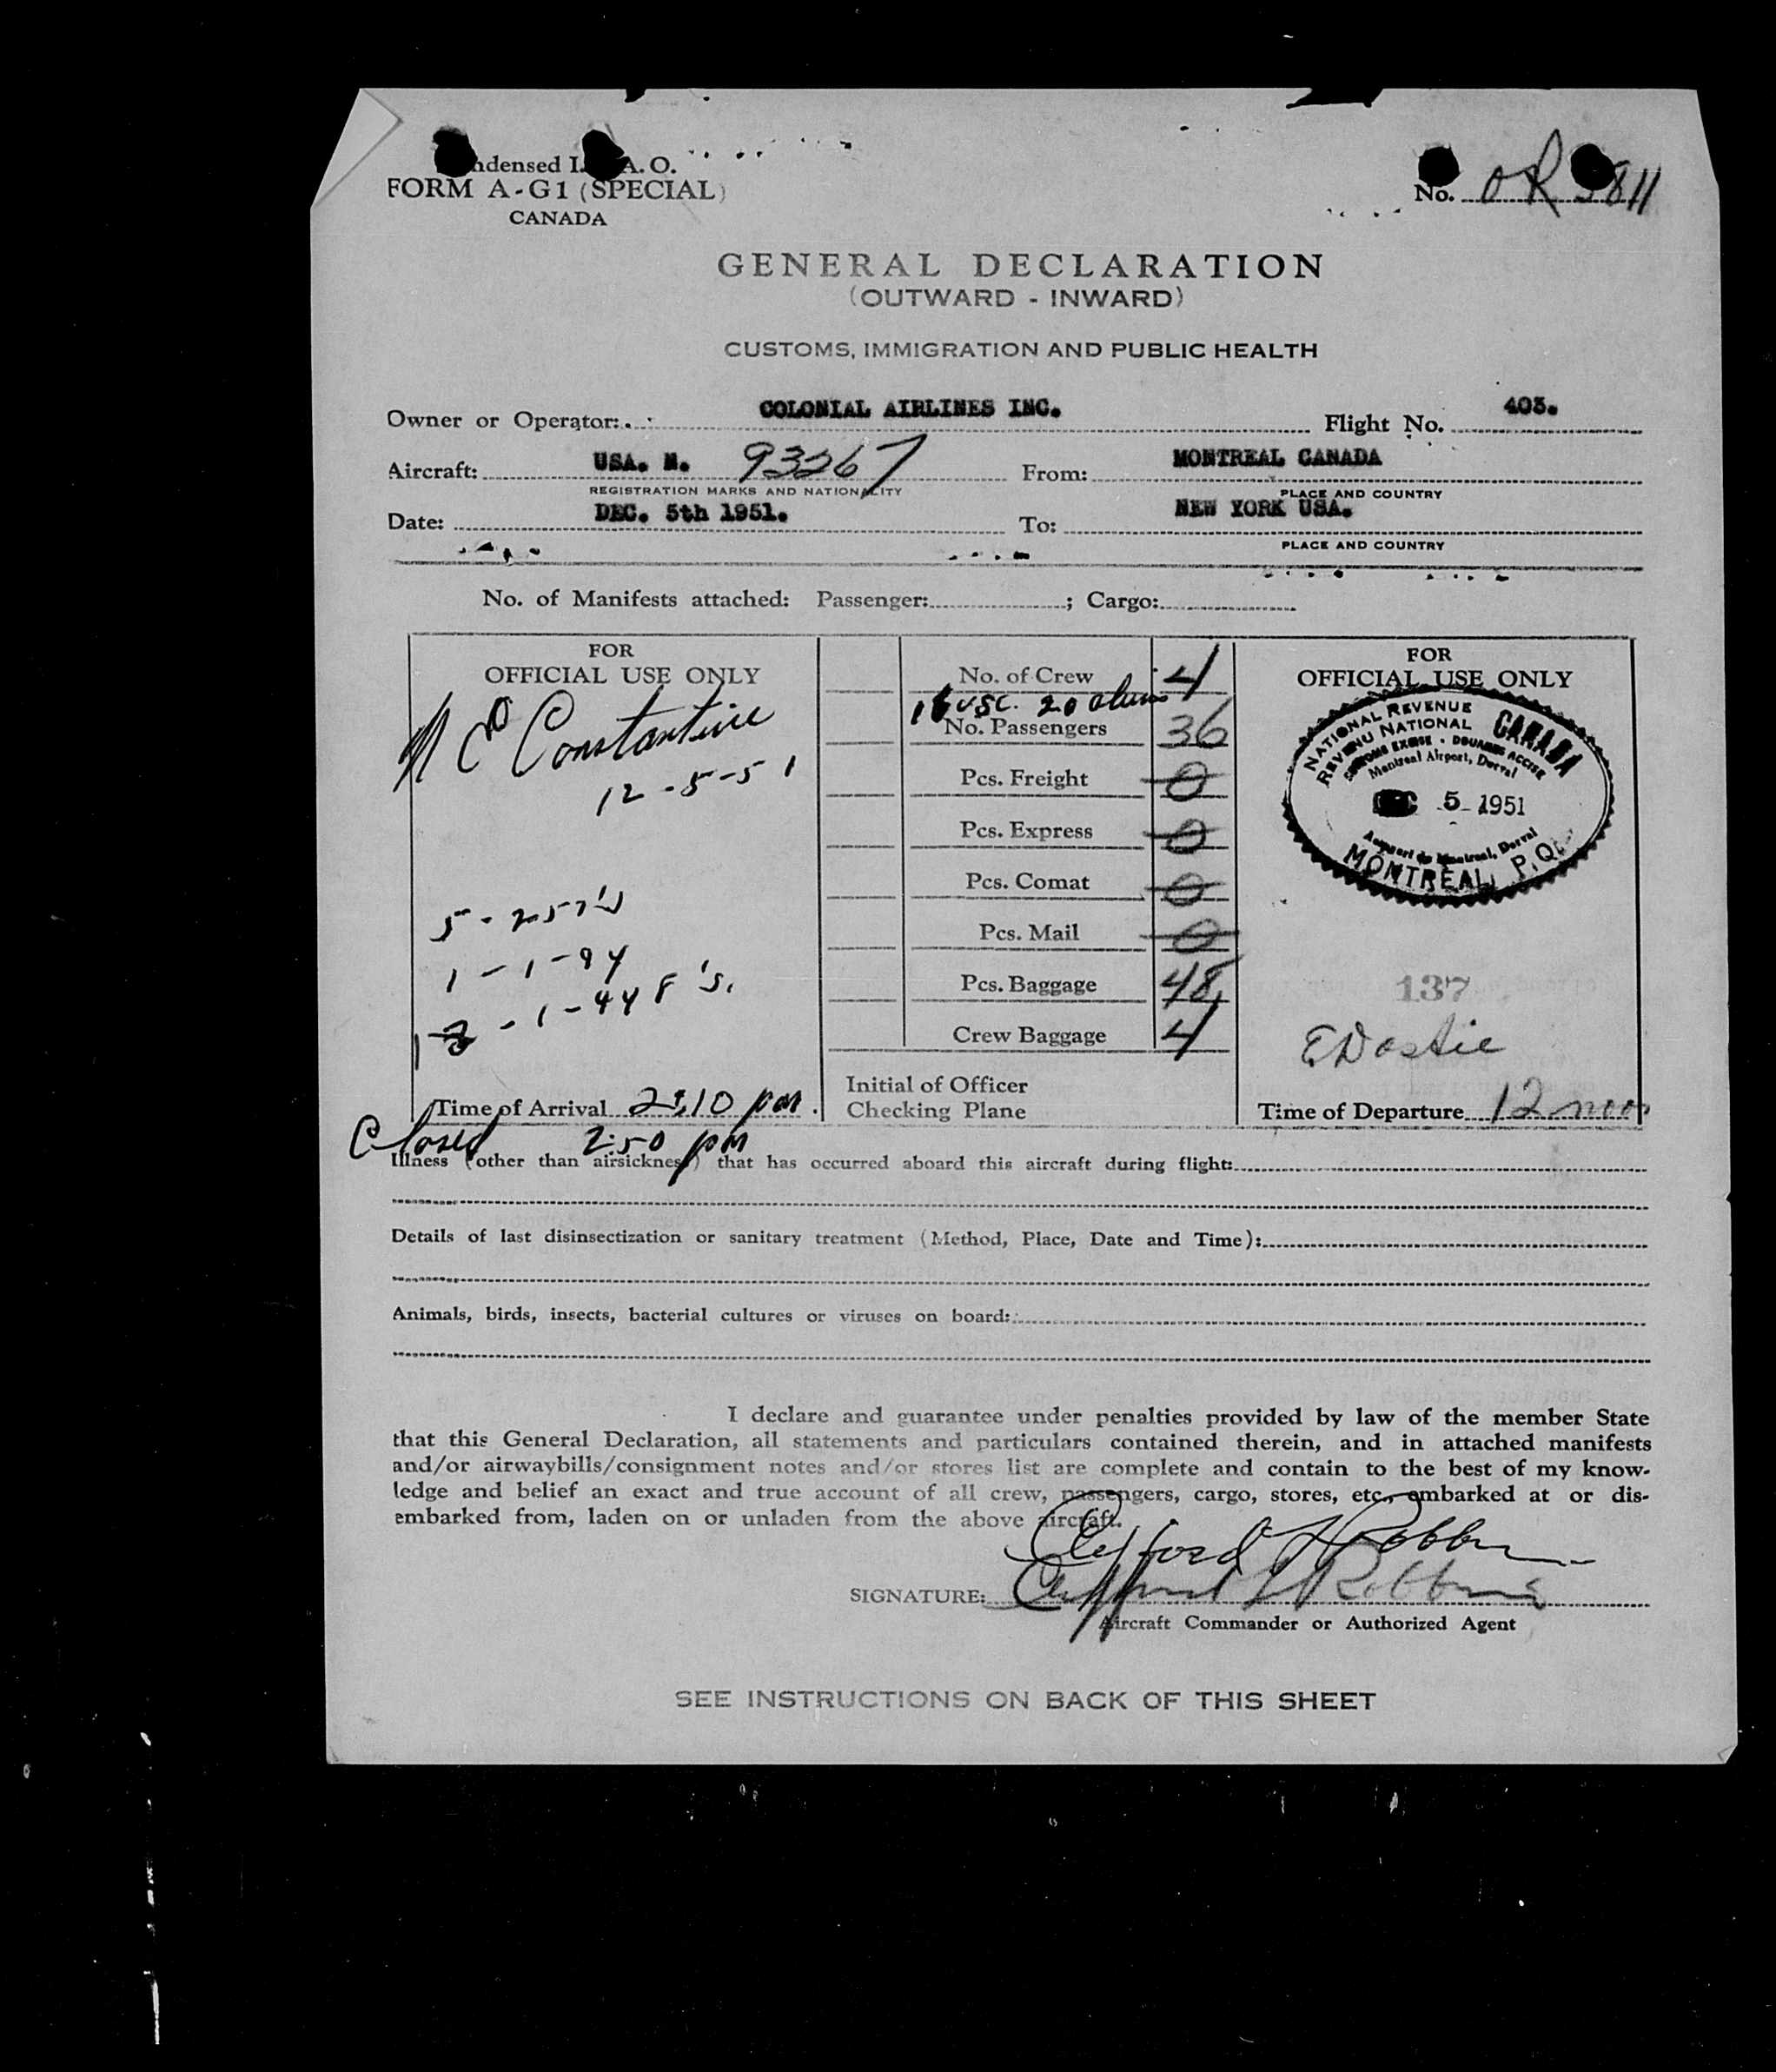 ndensed I. A. O.
FORM A-G1 (SPECIAL)
CANADA
No. OR 5811
GENERAL DECLARATION
(OUTWARD - INWARD)
CUSTOMS, IMMIGRATION AND PUBLIC HEALTH
Owner or Operator: COLONIAL AIRLINES INC. Flight No. 403.
Aircraft: USA. N. 93267 From: MONTREAL CANADA
REGISTRATION MARKS AND NATIONALITY PLACE AND COUNTRY
Date: DEC. 5th 1951. To: NEW YORK USA.
PLACE AND COUNTRY
No. of Manifests attached: Passenger: ; Cargo:
FOR
OFFICIAL USE ONLY
Constantine
12-5-51
5-257's
1-1-94
1-448's.
Time of Arrival 2:10 pm.
Closed 2:50 pm
No. of Crew 4
16 USC. 20 aliens
No. Passengers 36
Pcs. Freight 0
Pcs. Express 0
Pcs. Comat 0
Pcs. Mail 0
Pcs. Baggage 48
Crew Baggage 4
Initial of Officer
Checking Plane
FOR
OFFICIAL USE ONLY
NATIONAL REVENUE
REVENU NATIONAL
CANADA
CUSTOMS EXCISE · DOUANES ACCISE
Montreal Airport, Dorval
DEC 5 1951
Aeroport de Montreal, Dorval
MONTREAL, P.Q.
137
E Dostie
Time of Departure 12 noon
Illness (other than airsickness) that has occurred aboard this aircraft during flight:
Details of last disinsectization or sanitary treatment (Method, Place, Date and Time):
Animals, birds, insects, bacterial cultures or viruses on board:
I declare and guarantee under penalties provided by law of the member State
that this General Declaration, all statements and particulars contained therein, and in attached manifests
and/or airwaybills/consignment notes and/or stores list are complete and contain to the best of my know-
ledge and belief an exact and true account of all crew, passengers, cargo, stores, etc., embarked at or dis-
embarked from, laden on or unladen from the above aircraft.
Clifford Robbins
SIGNATURE: Clifford Robbins
Aircraft Commander or Authorized Agent
SEE INSTRUCTIONS ON BACK OF THIS SHEET